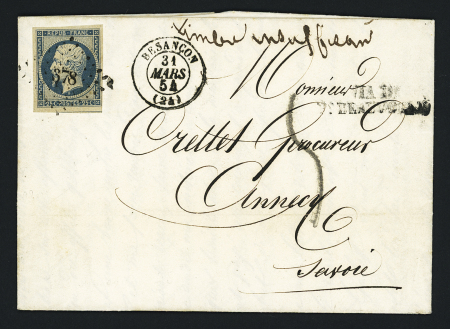 REPUB FRANC
378
BESANÇON
31
MARS
54
(24)
Timbre insuffisant
Monsieur
Crettet Procureur
Annecy
Savoie
5